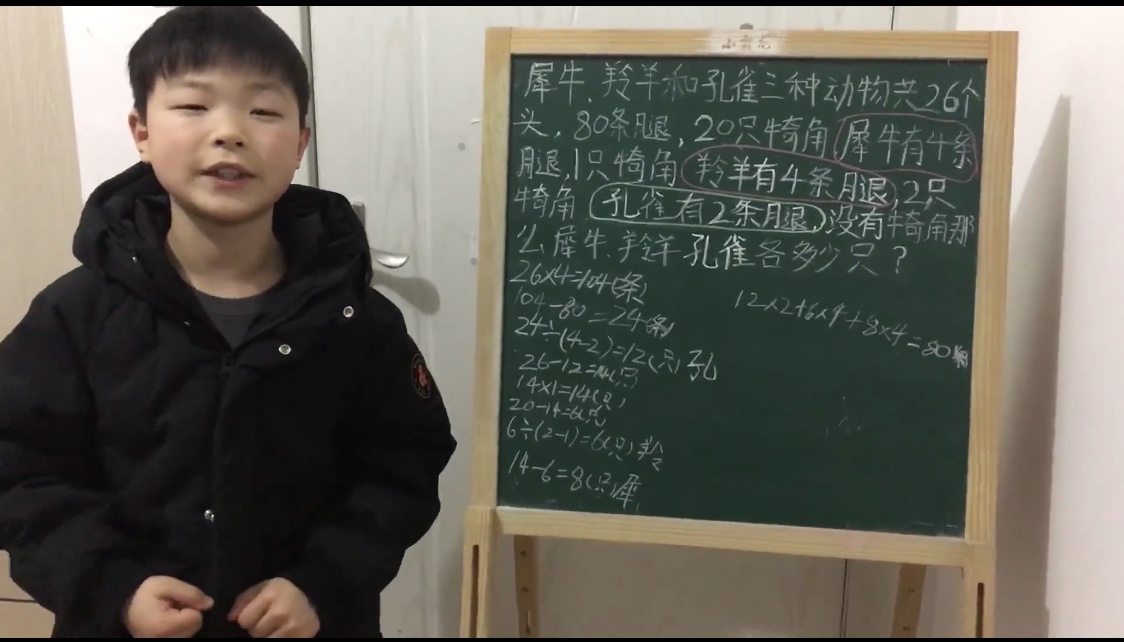 犀牛、羚羊和孔雀三种动物共26个
头,80条腿,20只犄角犀牛有4条
腿,1只犄角羚羊有4条腿,2只
犄角孔雀有2条腿,没有犄角那
么犀牛、羚羊孔雀各多少只?
26×4=104(条)
104-80=24(条)
24÷(4-2)=12(只)孔
26-12=14(只)
14×1=14(只)
20-14=6(只)
6÷(2-1)=6(只)羚
14-6=8(只)犀
12×2+6×4+8×4=80条